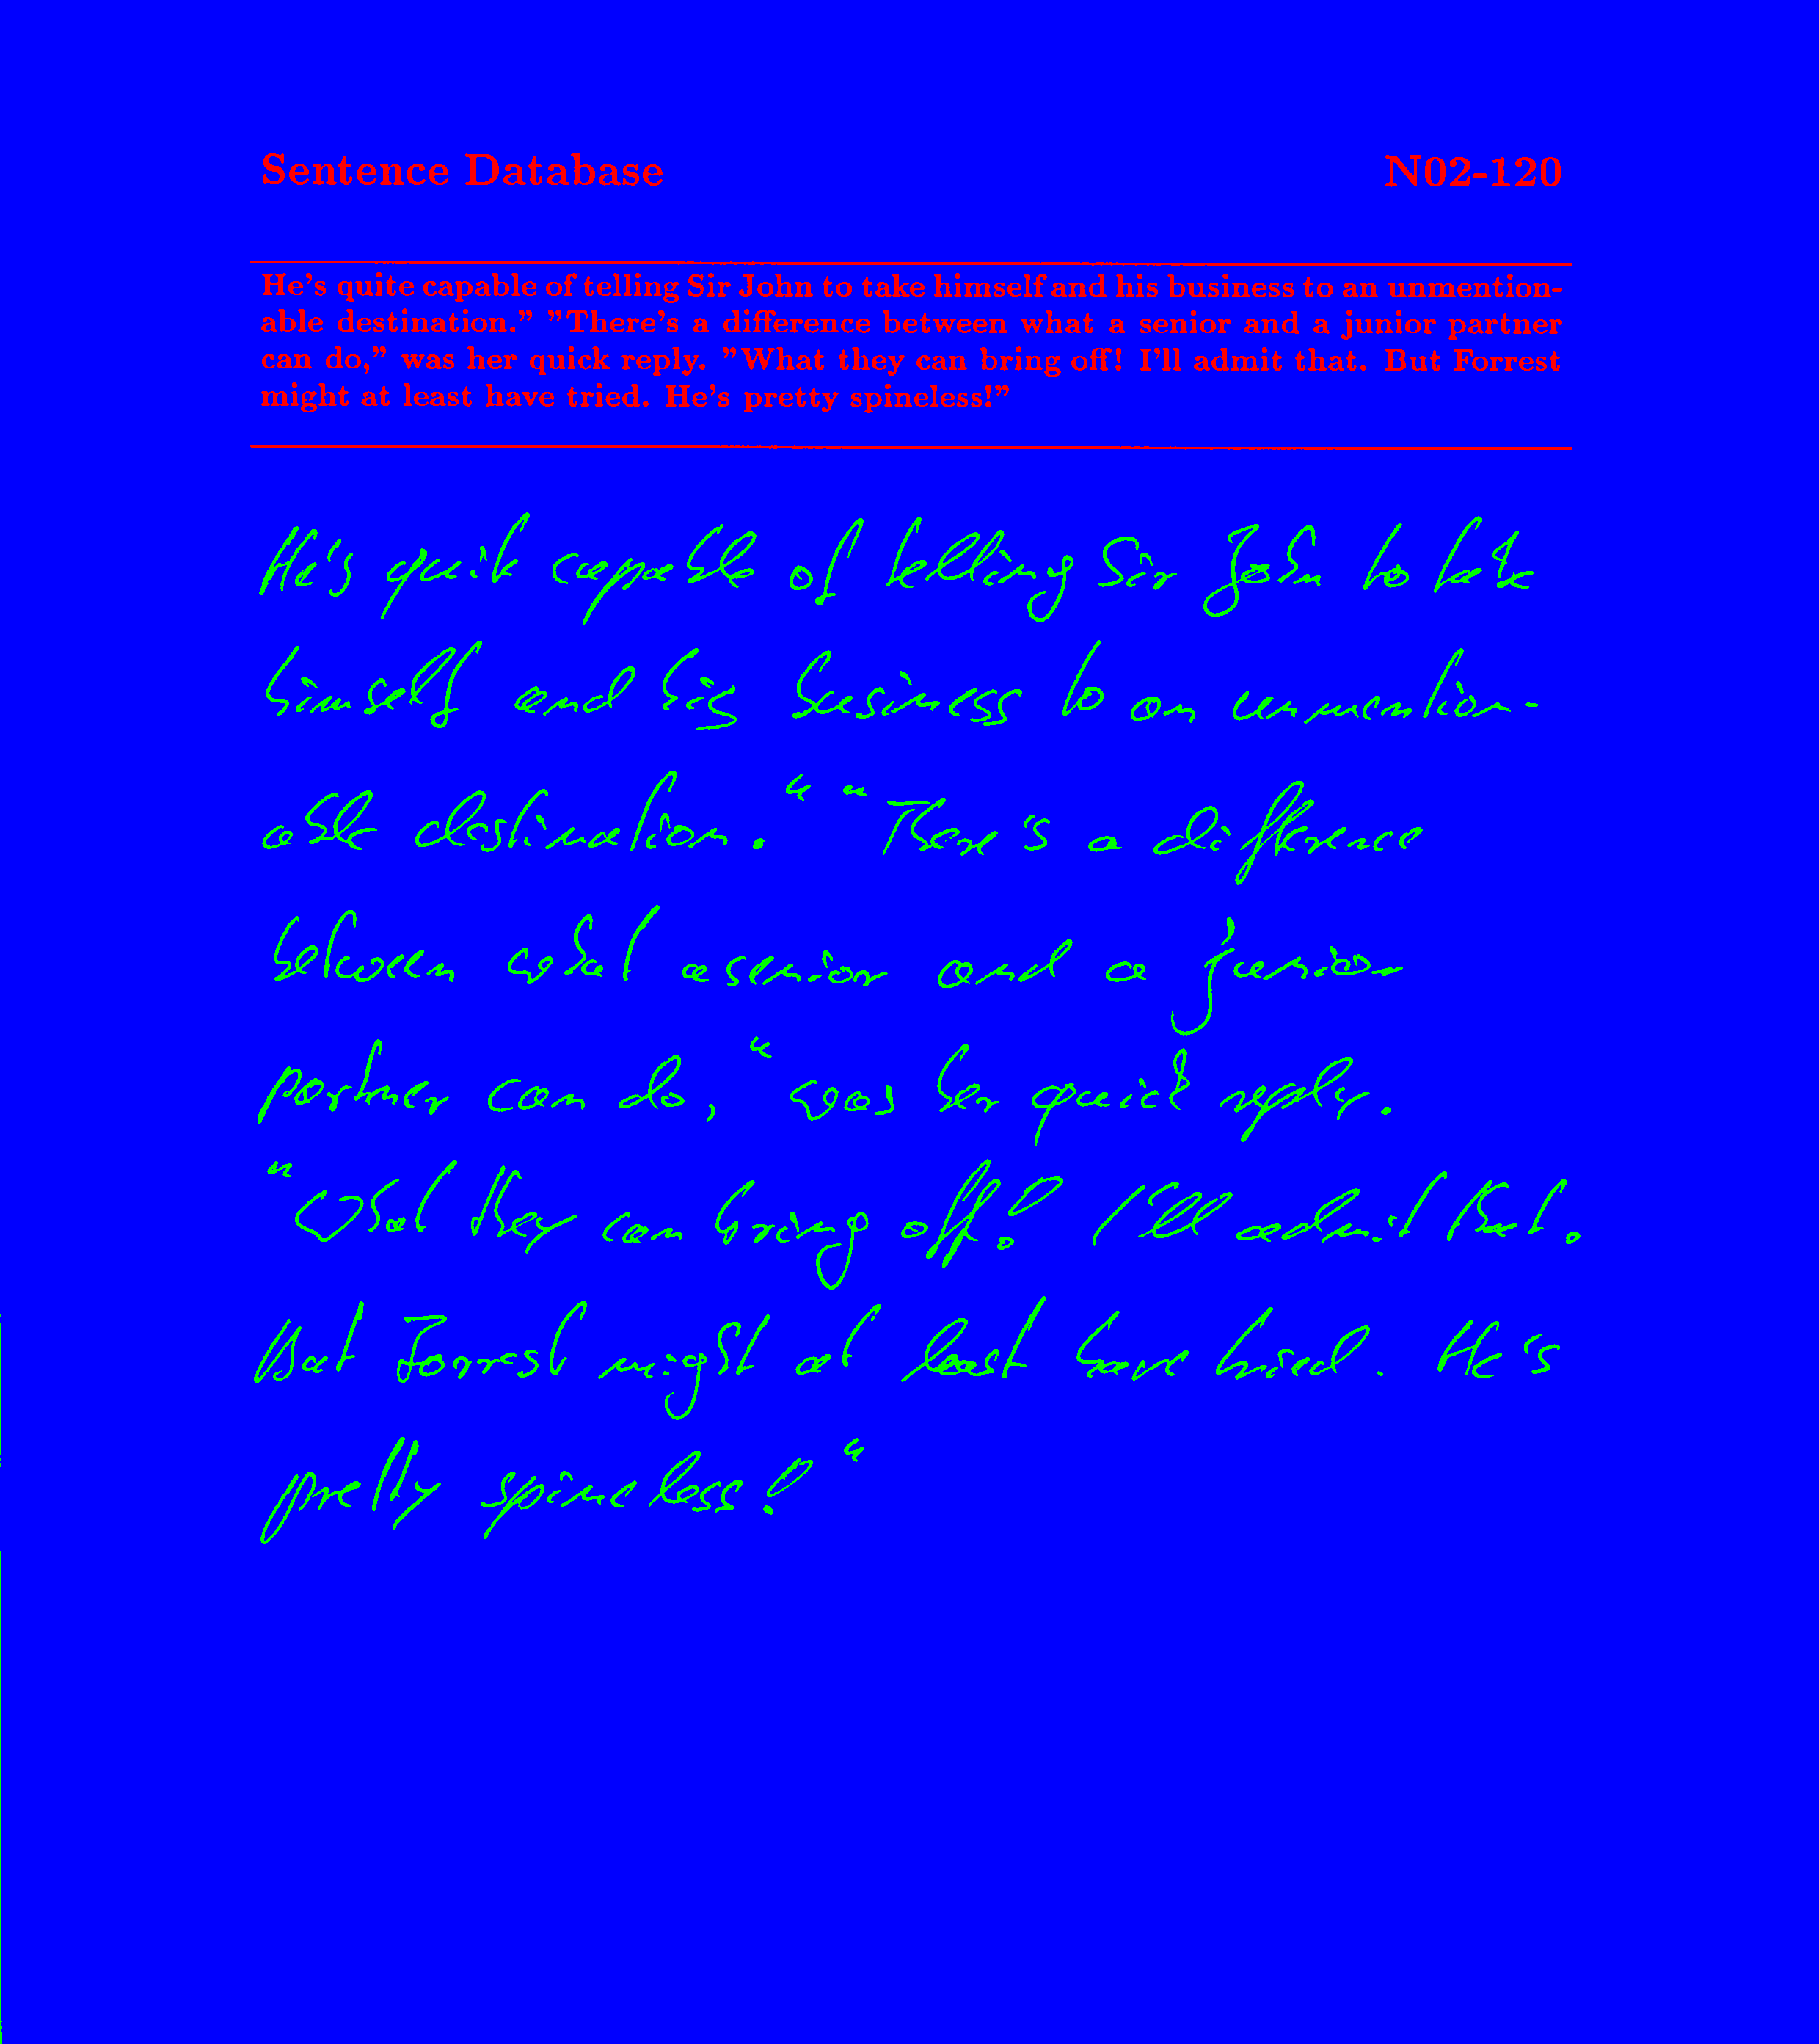 Sentence Database N02-120
He's quite capable of telling Sir John to take himself and his business to an unmention-
able destination." "There's a difference between what a senior and a junior partner
can do," was her quick reply. "What they can bring off! I'll admit that. But Forrest
might at least have tried. He's pretty spineless!"
He's quite capable of telling Sir John to take
himself and his business to an unmention-
able destination." "There's a difference
between what a senior and a junior
partner can do," was her quick reply.
"What they can bring off! I'll admit that.
But Forrest might at least have tried. He's
pretty spineless!"